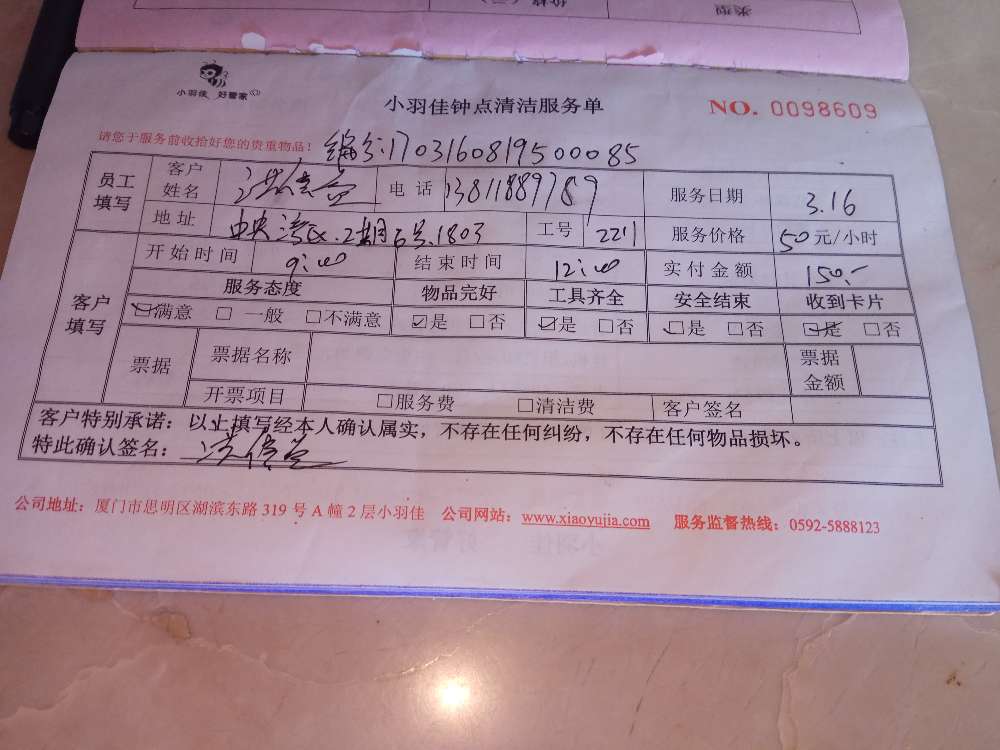 价格(元) 类型
小羽佳 好管家
小羽佳钟点清洁服务单 NO. 0098609
请您于服务前收拾好您的贵重物品! 编号:170316081950085
员工填写 客户姓名 洪信 电话 13811889789 服务日期 3.16
地址 中央湾区.2期6号.1803 工号 2221 服务价格 50元/小时
开始时间 9:00 结束时间 12:00 实付金额 150.-
客户填写 服务态度 物品完好 工具齐全 安全结束 收到卡片
☑满意 □一般 □不满意 ☑是 □否 ☑是 □否 ☑是 □否 ☑是 □否
票据 票据名称 票据金额
开票项目 □服务费 □清洁费 客户签名
客户特别承诺:以上填写经本人确认属实,不存在任何纠纷,不存在任何物品损坏。
特此确认签名: 洪信
公司地址:厦门市思明区湖滨东路 319 号 A 幢 2 层小羽佳 公司网站:www.xiaoyujia.com 服务监督热线:0592-5888123